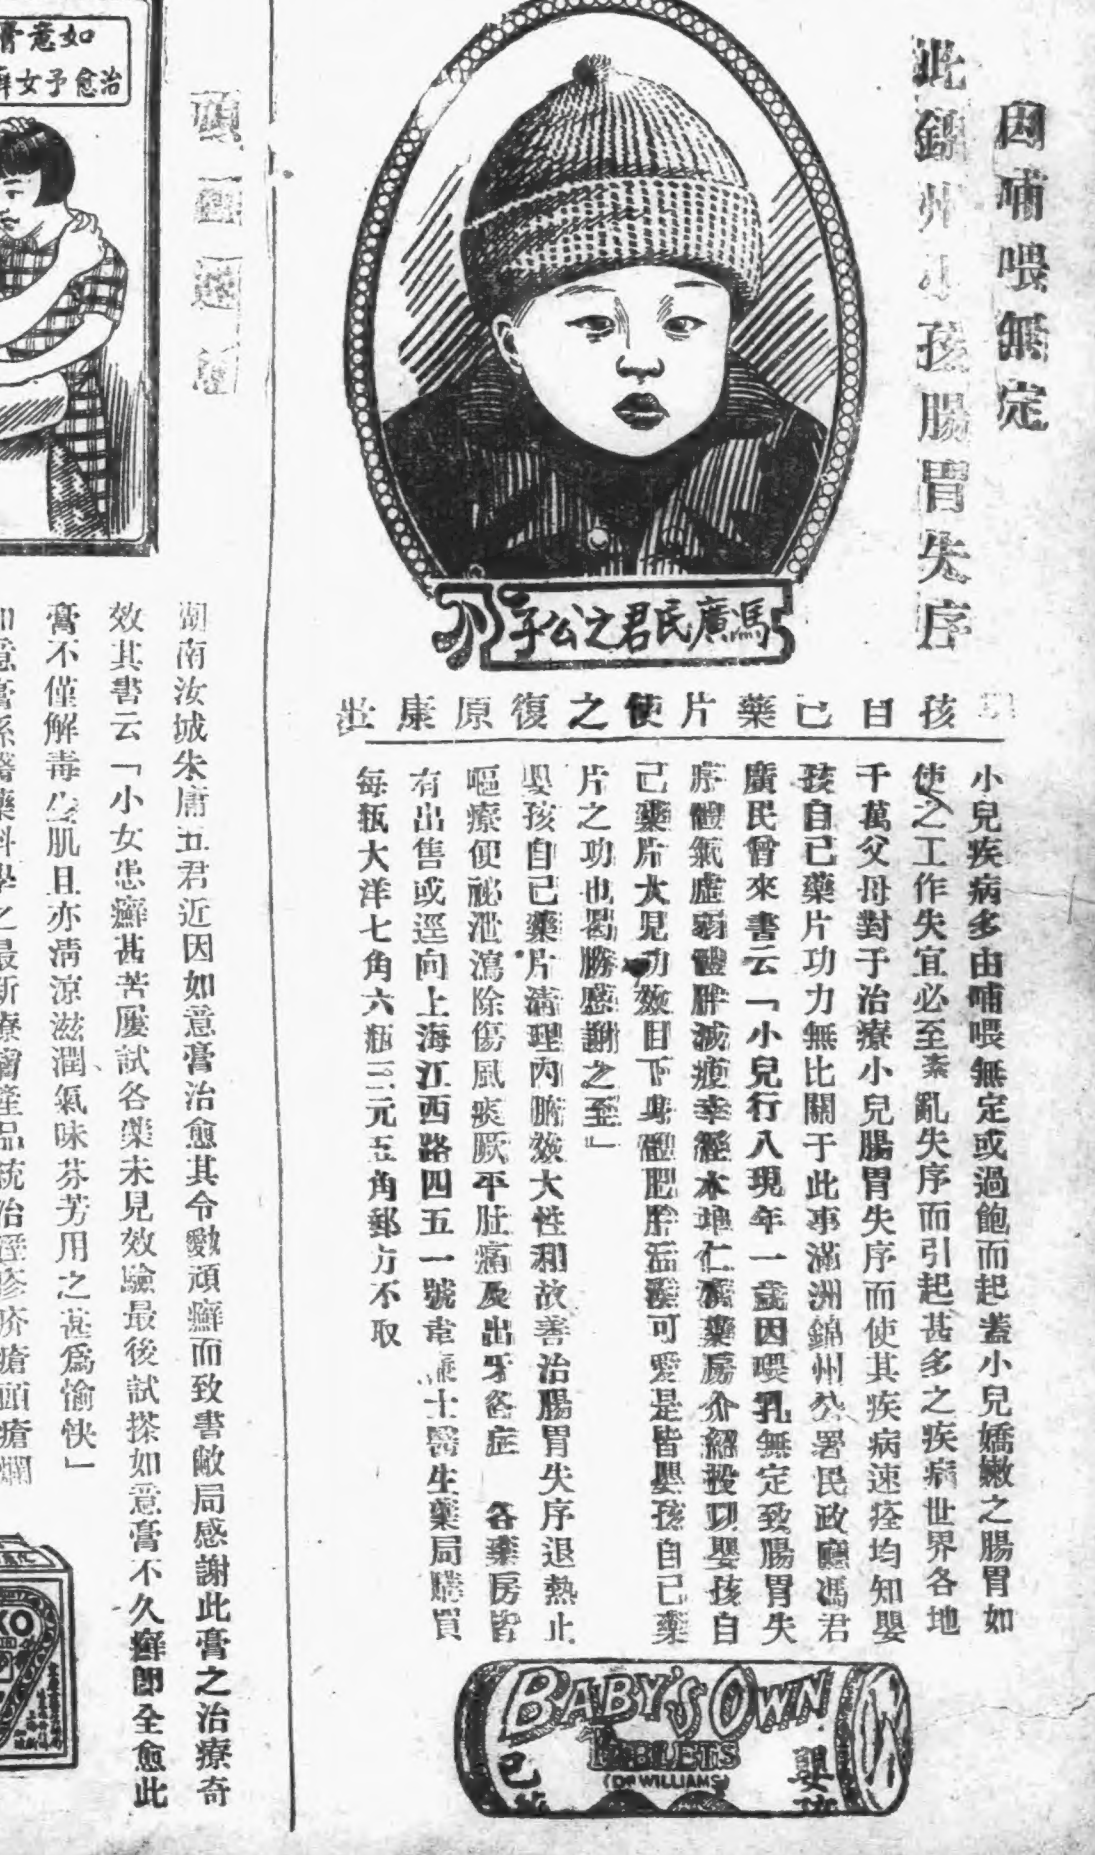 因哺喂無定
此錦州小孩腸胃失序
馮廣民君之公子
孩自己藥片使之復原康壯
小兒疾病多由哺喂無定或過飽而起蓋小兒嬌嫩之腸胃如
使之工作失宜必至紊亂失序而引起甚多之疾病世界各地
千萬父母對于治療小兒腸胃失序而使其疾病速痊均知嬰
孩自己藥片功力無比關于此事滿洲錦州公署民政廳馮君
廣民曾來書云「小兒行八現年一歲因喂乳無定致腸胃失
序體氣虛弱體胖減瘦幸經本埠仁濟藥房介紹投以嬰孩自
己藥片大見功效目下身體肥胖活潑可愛是皆嬰孩自己藥
片之功也曷勝感謝之至」
嬰孩自己藥片清理內腑效大性和故善治腸胃失序退熱止
嘔療便祕泄瀉除傷風痰厥平肚痛及出牙各症 各藥房皆
有出售或逕向上海江西路四五一號韋廉士醫生藥局購買
每瓶大洋七角六瓶三元五角郵力不取
BABY'S OWN
TABLETS
(DR WILLIAMS)
嬰
己
如意膏
治愈予女癬
頑
湖南汝城朱庸五君近因如意膏治愈其令嬡頑癬而致書敝局感謝此膏之治療奇
效其書云「小女患癬甚苦屢試各藥未見效驗最後試搽如意膏不久癬即全愈此
膏不僅解毒生肌且亦清涼滋潤氣味芬芳用之甚為愉快」
如意膏係醫藥科學之最新療膚產品統治溼疹疥瘡頭瘡爛
KO